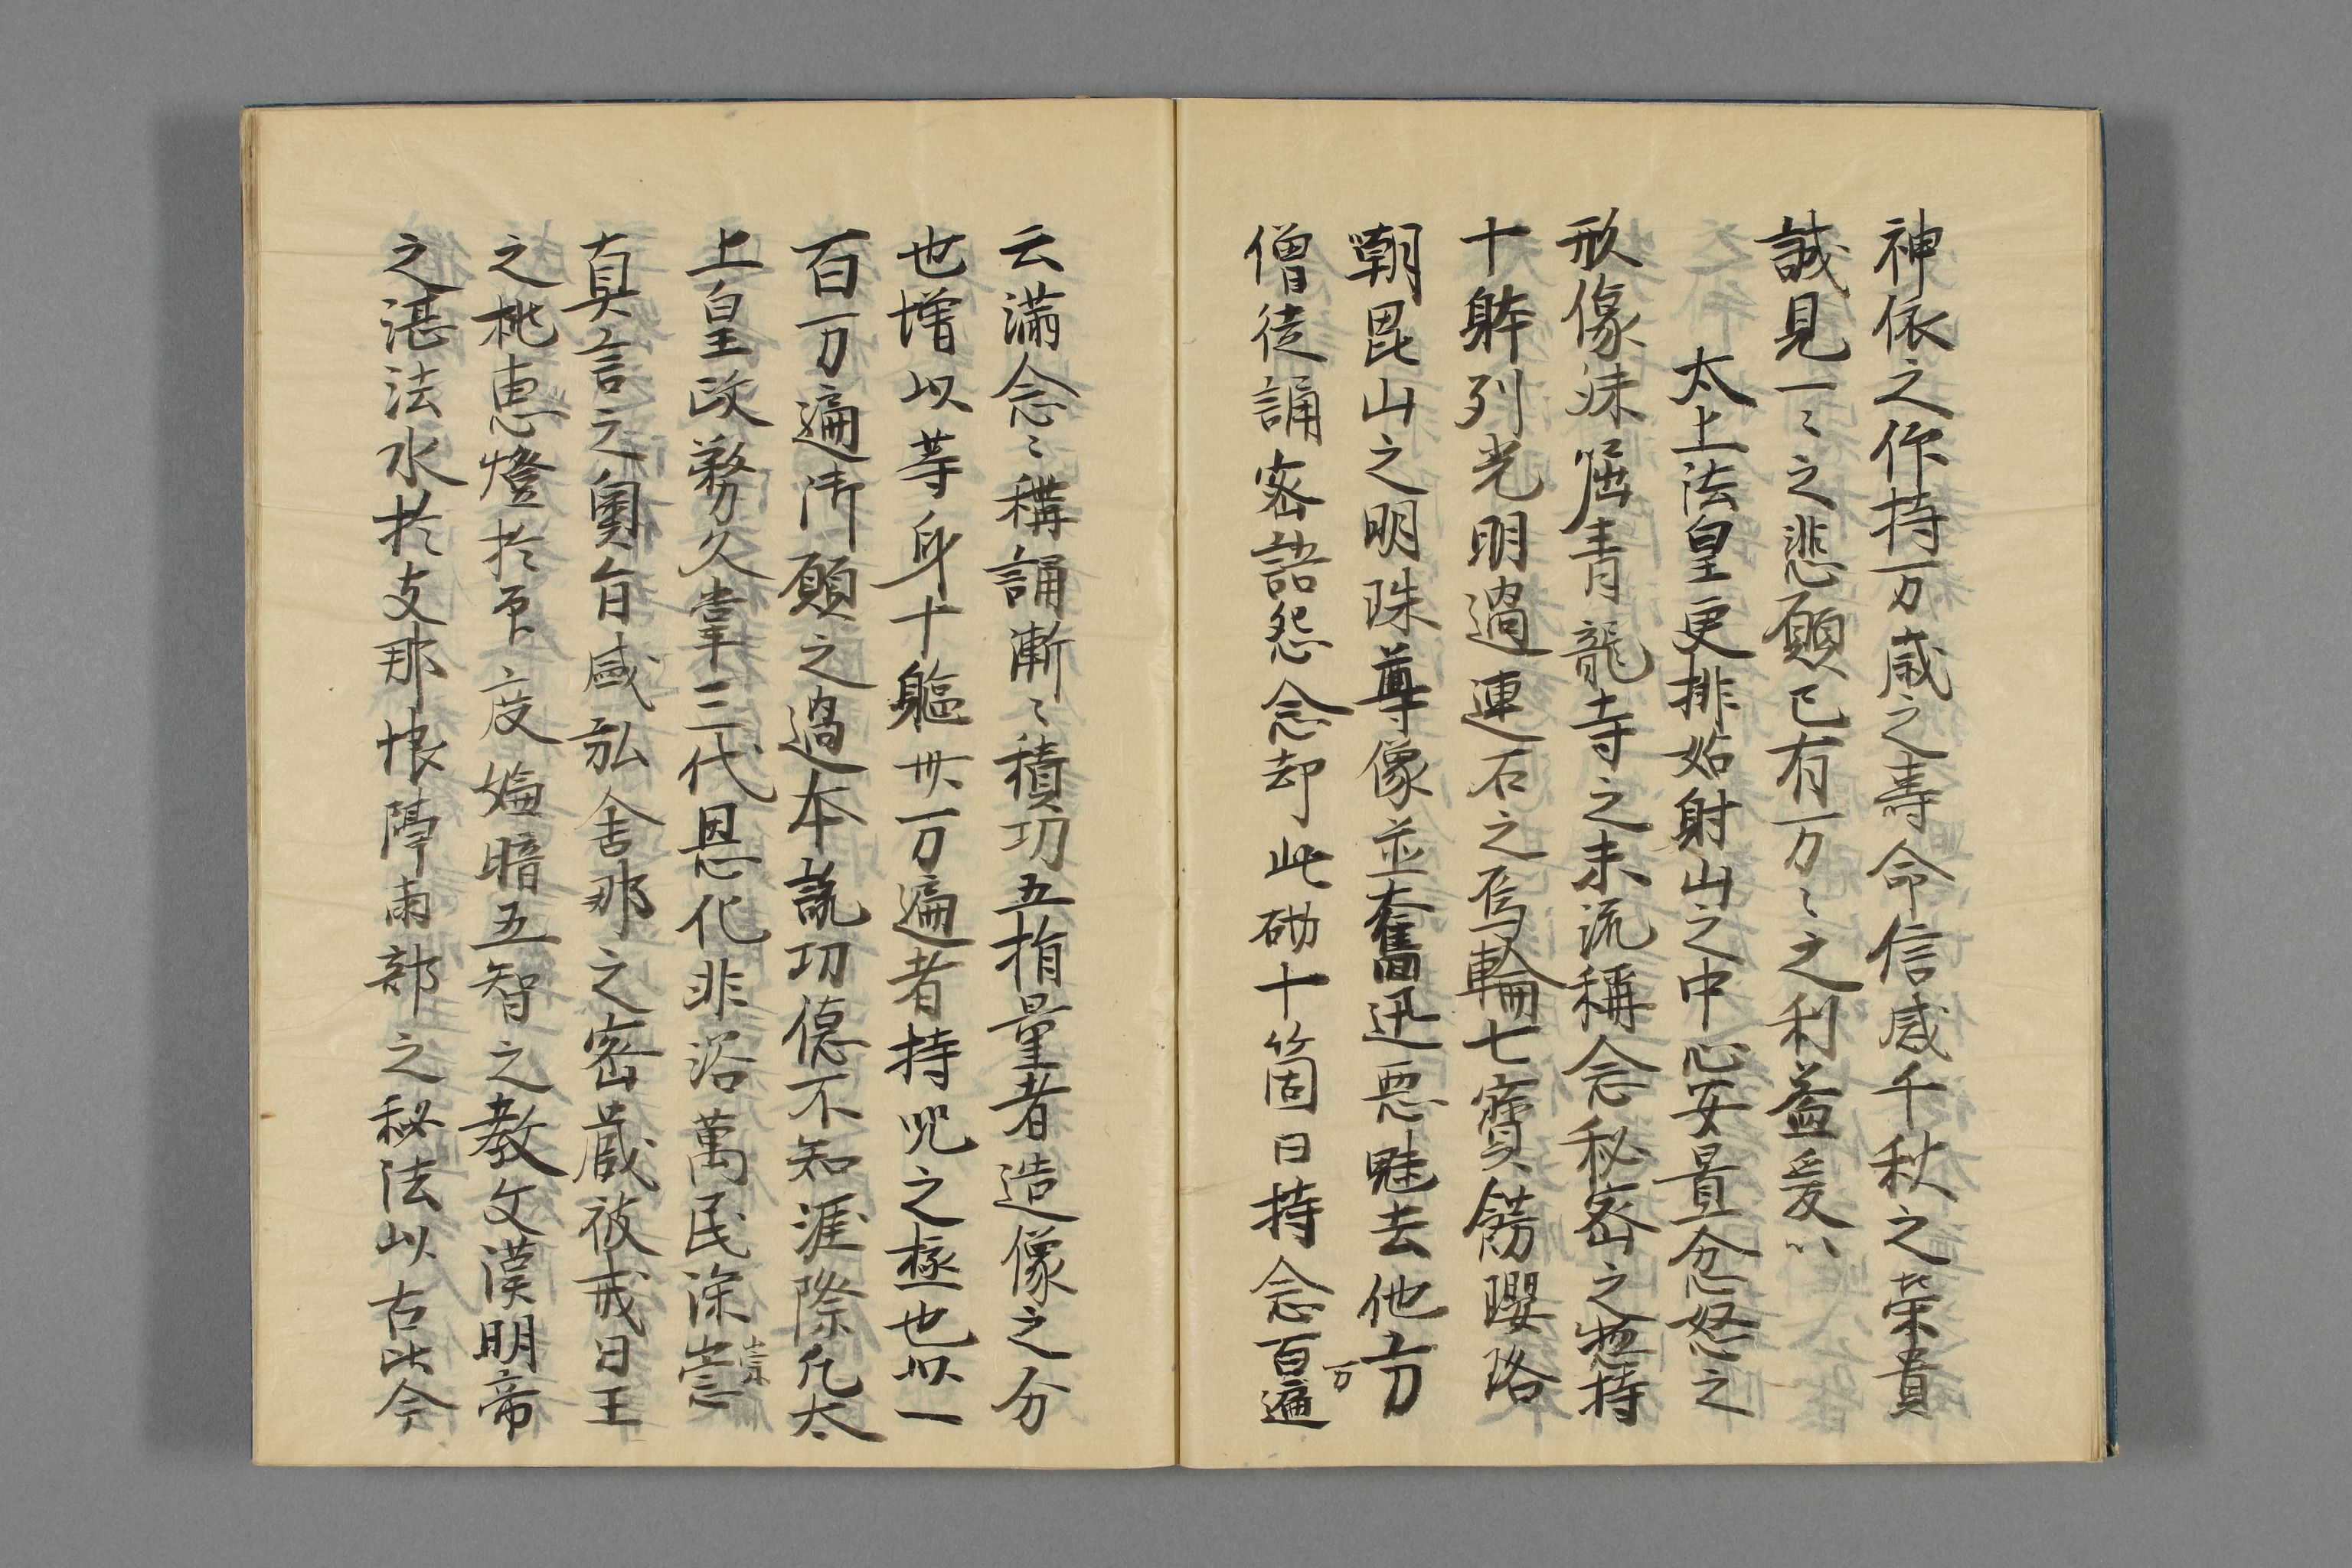 神依之作持万歳之寿命信感千秋之栄貴
誠見一ミ之悲願已有万ミ之利益爰以
太上法皇更排姑射山之中心安置忿怒之
形像沫屈青龍寺之末流稱念秘密之惣持
十躰列光明過連石之烏輪七寶餝瓔珞
嘲毘山之明珠尊像並奮迅悪魅去他方
僧徒誦密語怨念却此砌十箇日持念百遍
万
云満念ミ稱誦漸ミ積功五指量者造像之分
也増以等身十軀卅万遍者持咒之極也以一
百万遍御願之過本説功徳不知涯際凡太
上皇政務久掌三代恩化非浴萬民深崇
崇
真言之奥旨盛弘舎那之密蔵彼戒日王
之挑恵燈於印度 暗五智之教文漢明帝
之湛法水於支那 隔両部之秘法以古比今